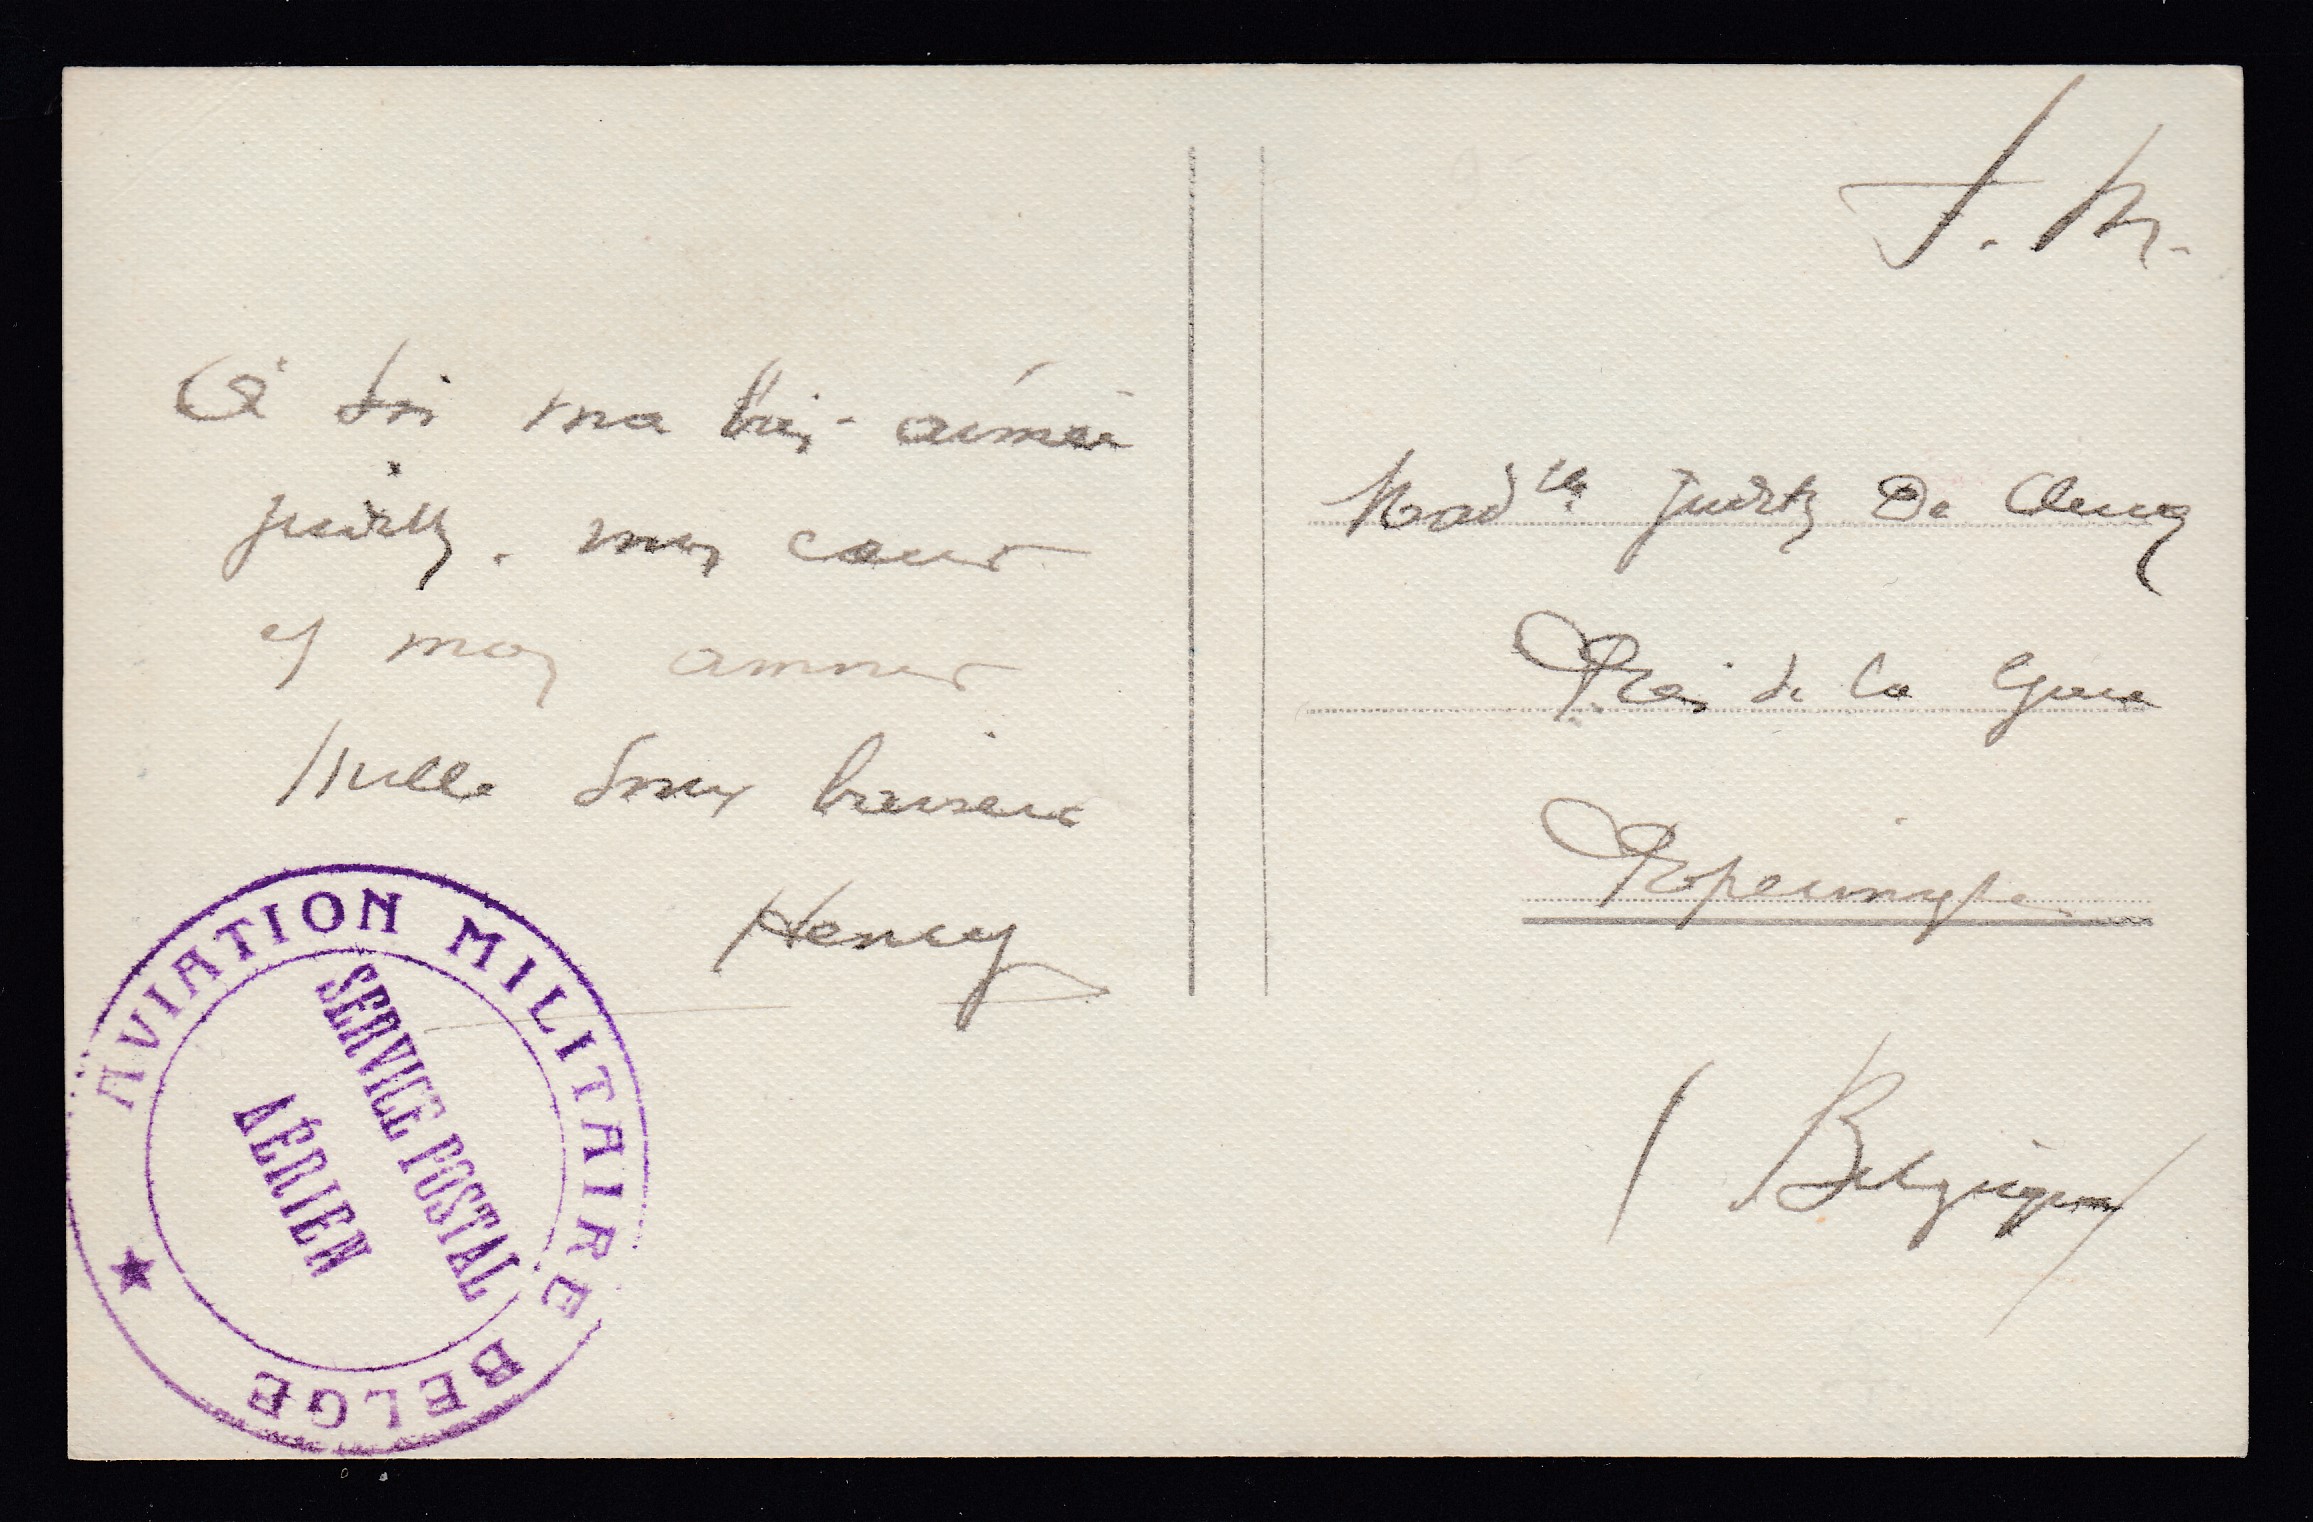 A toi ma bien-aimée
Judith. mon cœur
et mon amour
Mille doux baisers
Henry
AVIATION MILITAIRE BELGE
SERVICE POSTAL
AÉRIEN
S.M.
Mad lle Judith De Clercq
Près de la Gare
Poperinghe
(Belgique)